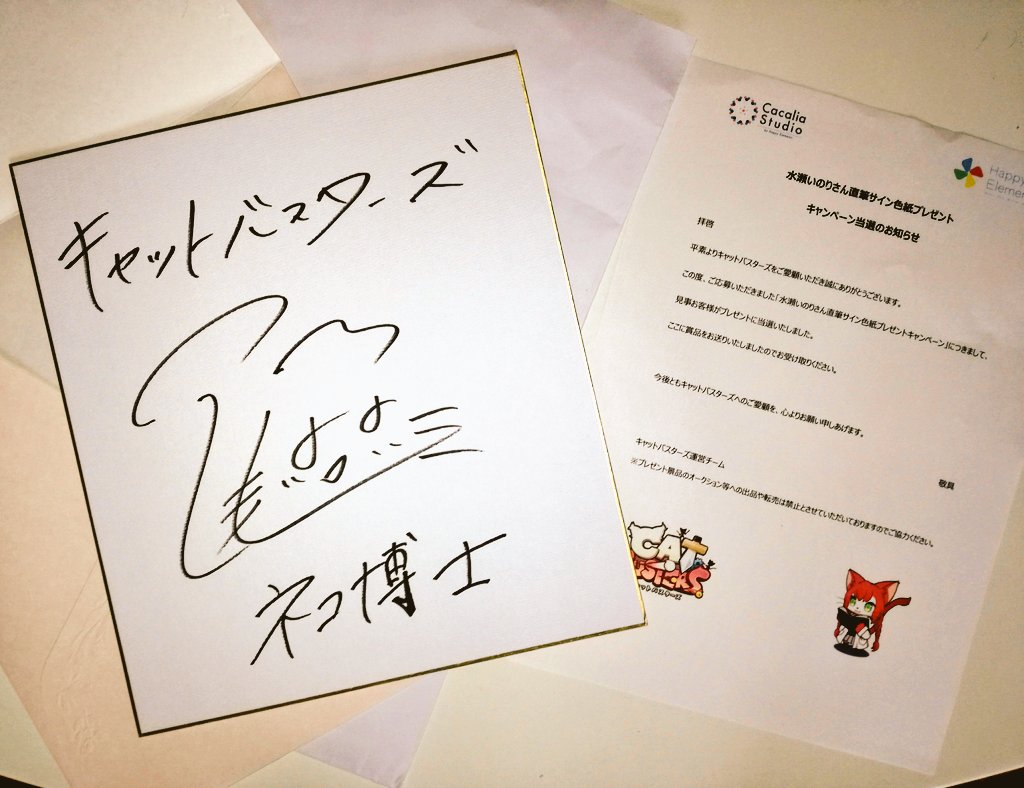 キャットバスターズ
ネコ博士
Cacalia
Studio
Happy
水瀬いのりさん直筆サイン色紙プレゼント
キャンペーン当選のお知らせ
拝啓
平素よりキャットバスターズをご愛顧いただき誠にありがとうございます。
この度、ご応募いただきました「水瀬いのりさん直筆サイン色紙プレゼントキャンペーン」につきまして、
見事お客様がプレゼントに当選いたしました。
ここに賞品をお送りいたしましたのでお受け取りください。
今後ともキャットバスターズへのご愛顧を、心よりお願い申しあげます。
キャットバスターズ運営チーム
敬具
※プレゼント景品のオークション等への出品や転売は禁止とさせていただいておりますのでご協力ください。
CAT